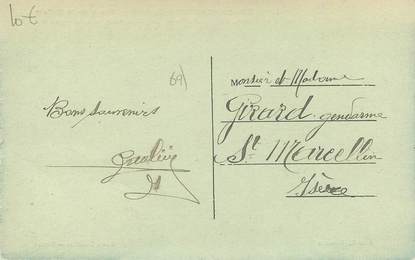 lot
69)
Bons souvenirs
Monsieur et Madame
Girard gendarme
St Marcellin
Isère